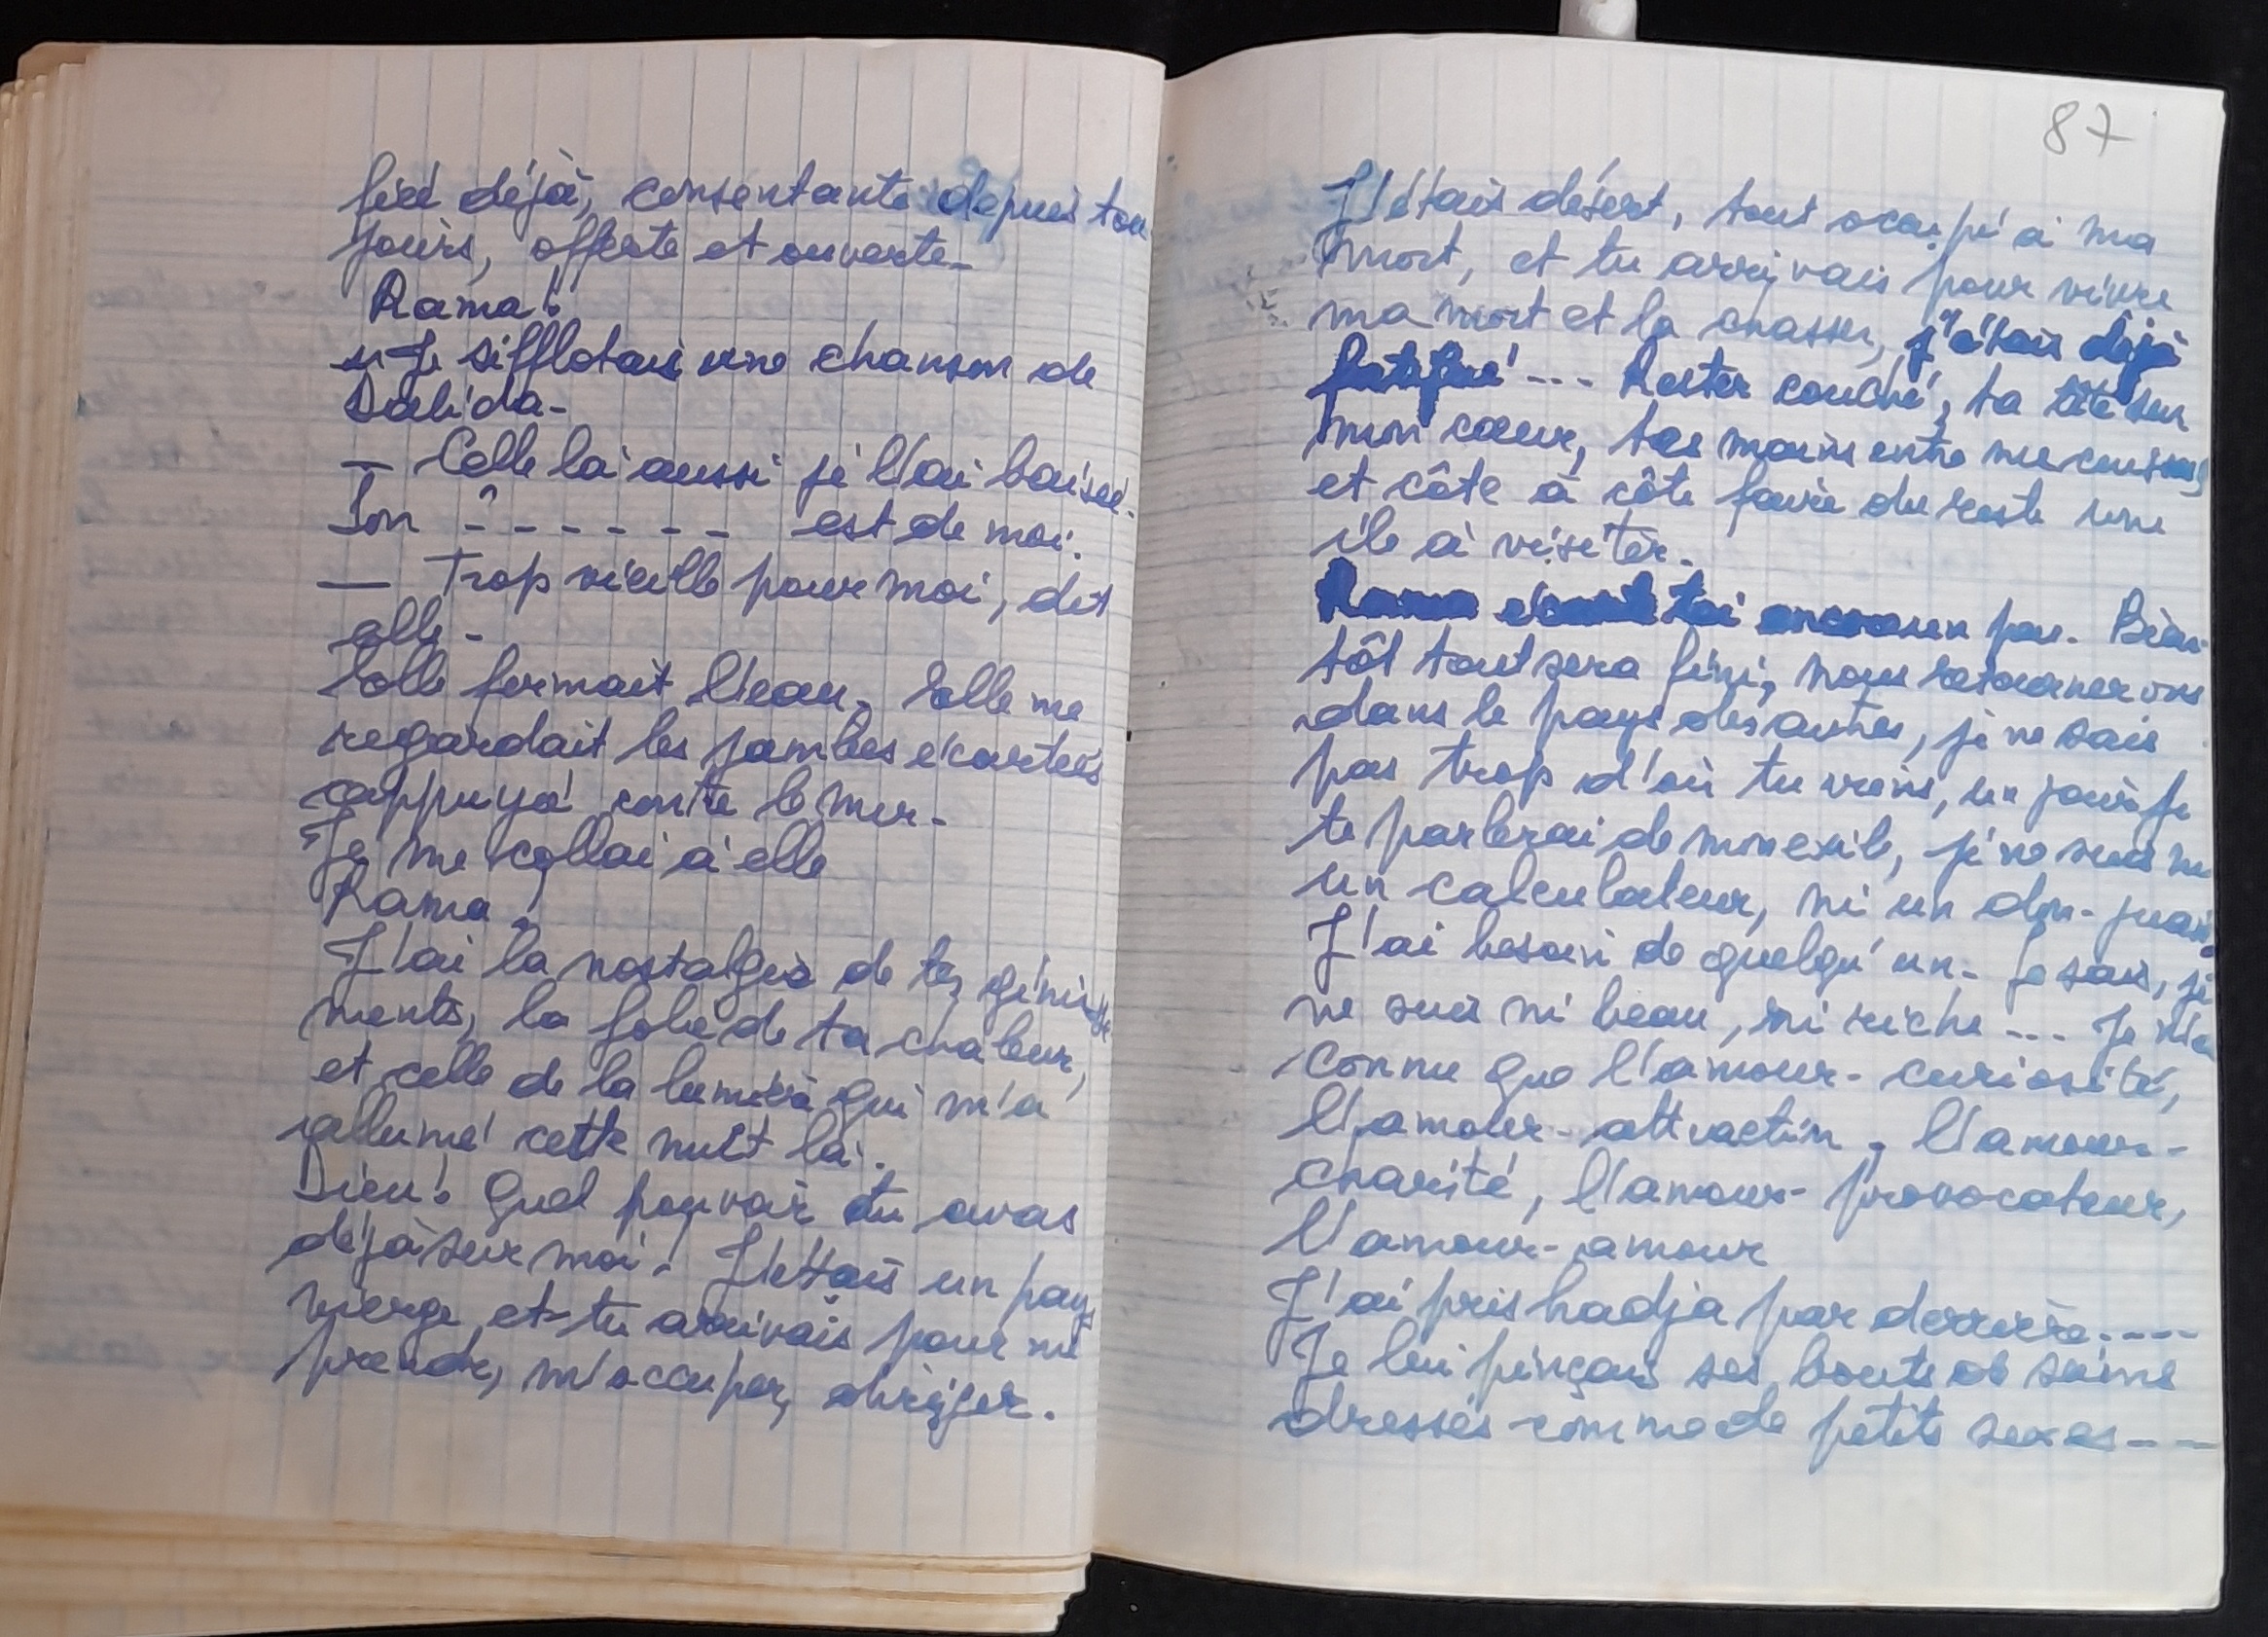 déjà, consentante depuis tou
jours, offerte et ouverte_
Rama!
Je sifflotais une chanson de
Dalida_
— Celle là aussi je l'ai baisée.
Son ------- est de moi.
— Trop vieille pour moi, dit
elle_
Elle fermait l'eau. Elle me
regardait les jambes écartées
appuyé contre le mur_
Je me collai à elle
Rama!
J'ai la nostalgie de tes gémisse
ments, la folie de ta chaleur,
et celle de la lumière qui m'a
allumé cette nuit là.
Dieu! Quel pouvoir tu avas
déjà sur moi! J'étais un pays
vierge et tu arrivais pour me
prendre, m'occuper, diriger.
87
J'étais désert, tout occupé à ma
mort, et tu arrivais pour vivre
ma mort et la chasser, j'étais déjà
--- Rester couché, ta tête sur
mon cœur, tes mains entre me cuisses,
et côte à côte faire du reste une
île à visiter.
Rama écarte toi encore un peu. Bien
tôt tout sera fini, nous retournerons
dans le pays des autres, je ne sais
pas trop d'où tu viens, un jour je
te parlerai de mon exil, je ne suis ni
un calculateur, ni un don-juan.
J'ai besoin de quelqu'un_ Je sais, je
ne suis ni beau, ni riche --- Je n'ai
connu que l'amour-curiosité,
l'amour-attraction, l'amour-
charité, l'amour-provocateur,
l'amour-amour
J'ai pris hadja par derrière.----
Je lui pinçais ses bouts de seins
dressés comme de petits sexes---